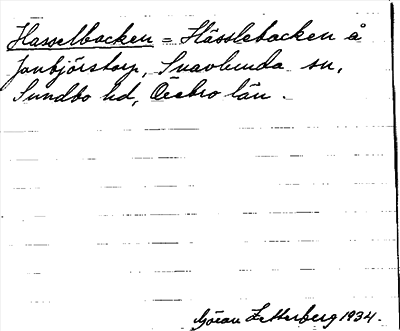 Hasselbacken = Hässlebacken å
Janbjörstorp, Snavlunda sn,
Sundbo hd, Örebro län.
Göran Zetterberg 1934.